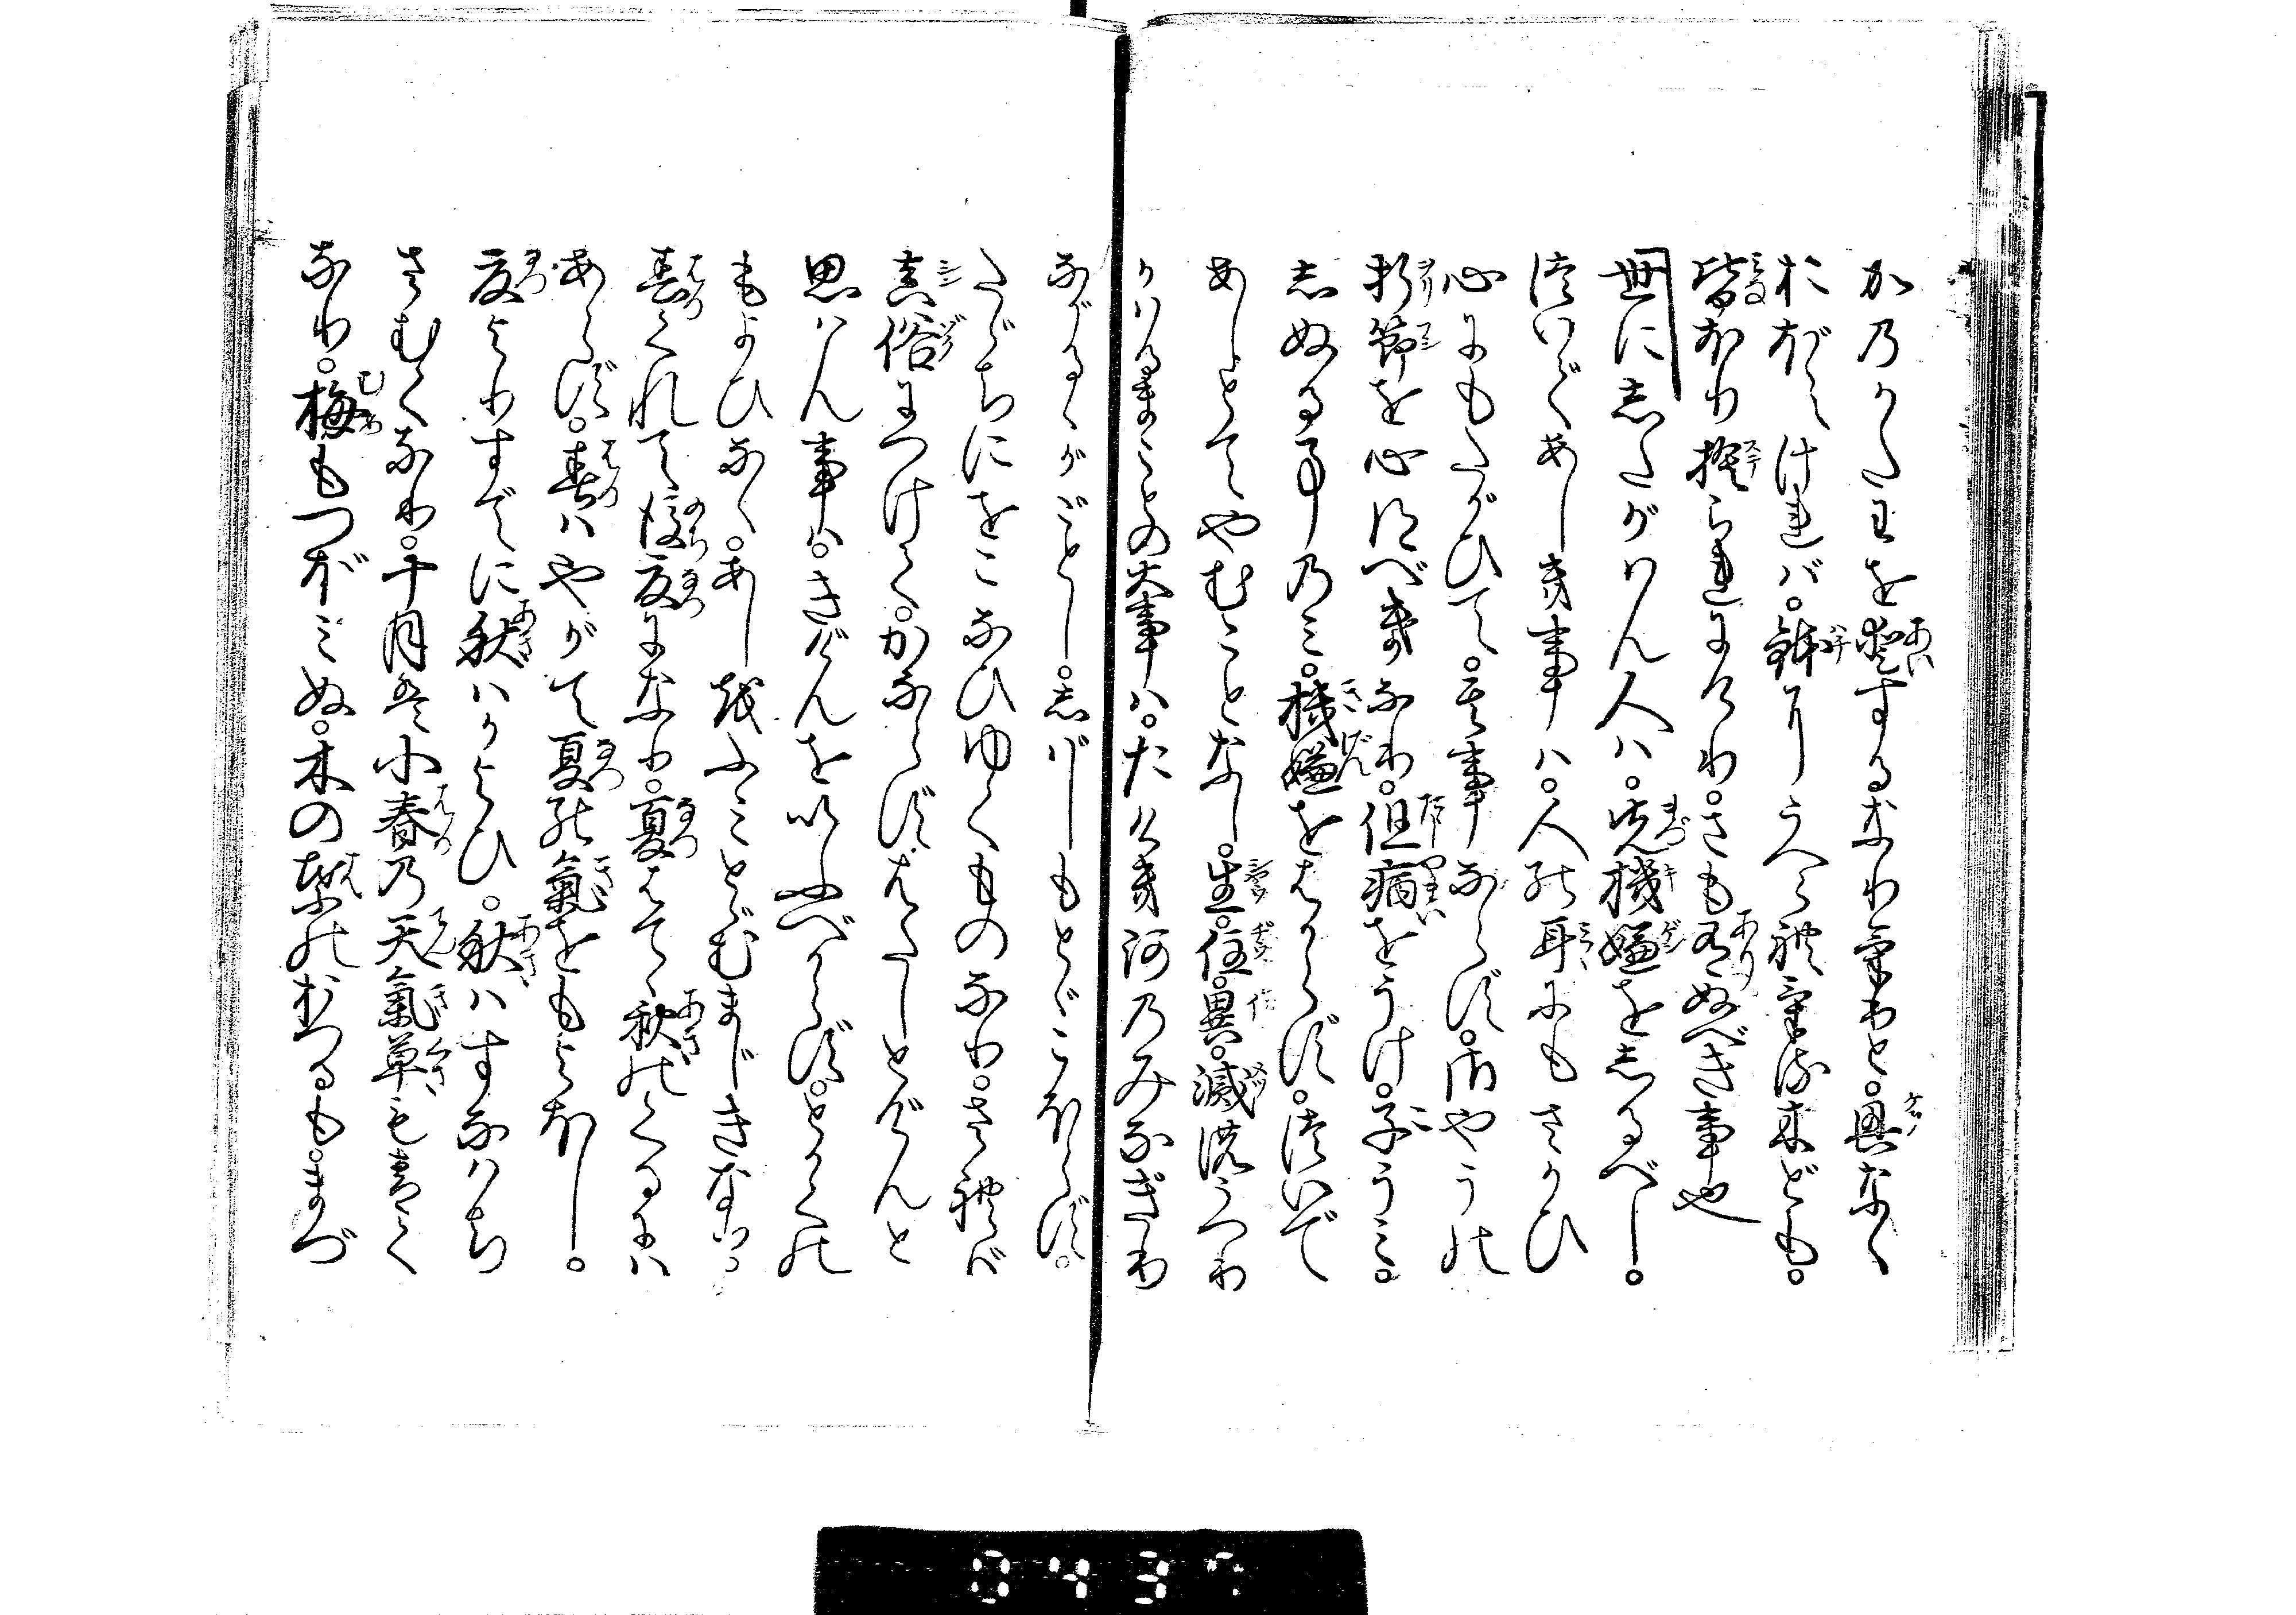 かのかたわを愛するなりけりと。興なく
おぼえければ。鉢にうへられける木ども。
皆ほり捨られにけり。さも有ぬべき事也
世にしたがはん人は。先機嫌をしるべし。
ついであしき事は。人の耳にもさかひ
心にもたがひて。其事ならず。さやうの
折節を心得べきなり。但病をうけ。子うみ。
しぬる事のみ。機嫌をはからず。ついで
あしとてやむことなし。生。住。異。滅のうつり
かはるまことの大事は。たけき河のみなぎり
ながるゝがごとし。しばしもとゞこほらず。
たゞちにをこなひゆくものなり。されば
真俗につけて。かならずはたしとげんと
思はん事は。きげんをいふべからず。とかくの
もよひなく。あし越ふみとゞむまじきなり
春くれて後夏になり。夏はてゝ秋のくるには
あらず。春はやがて夏の氣をもよほし。
夏よりすでに秋はかよひ。秋はすなはち
さむくなり。十月は小春の天氣草も青く
なり。梅もつぼみぬ。木の葉のおつるも。まづ
0437